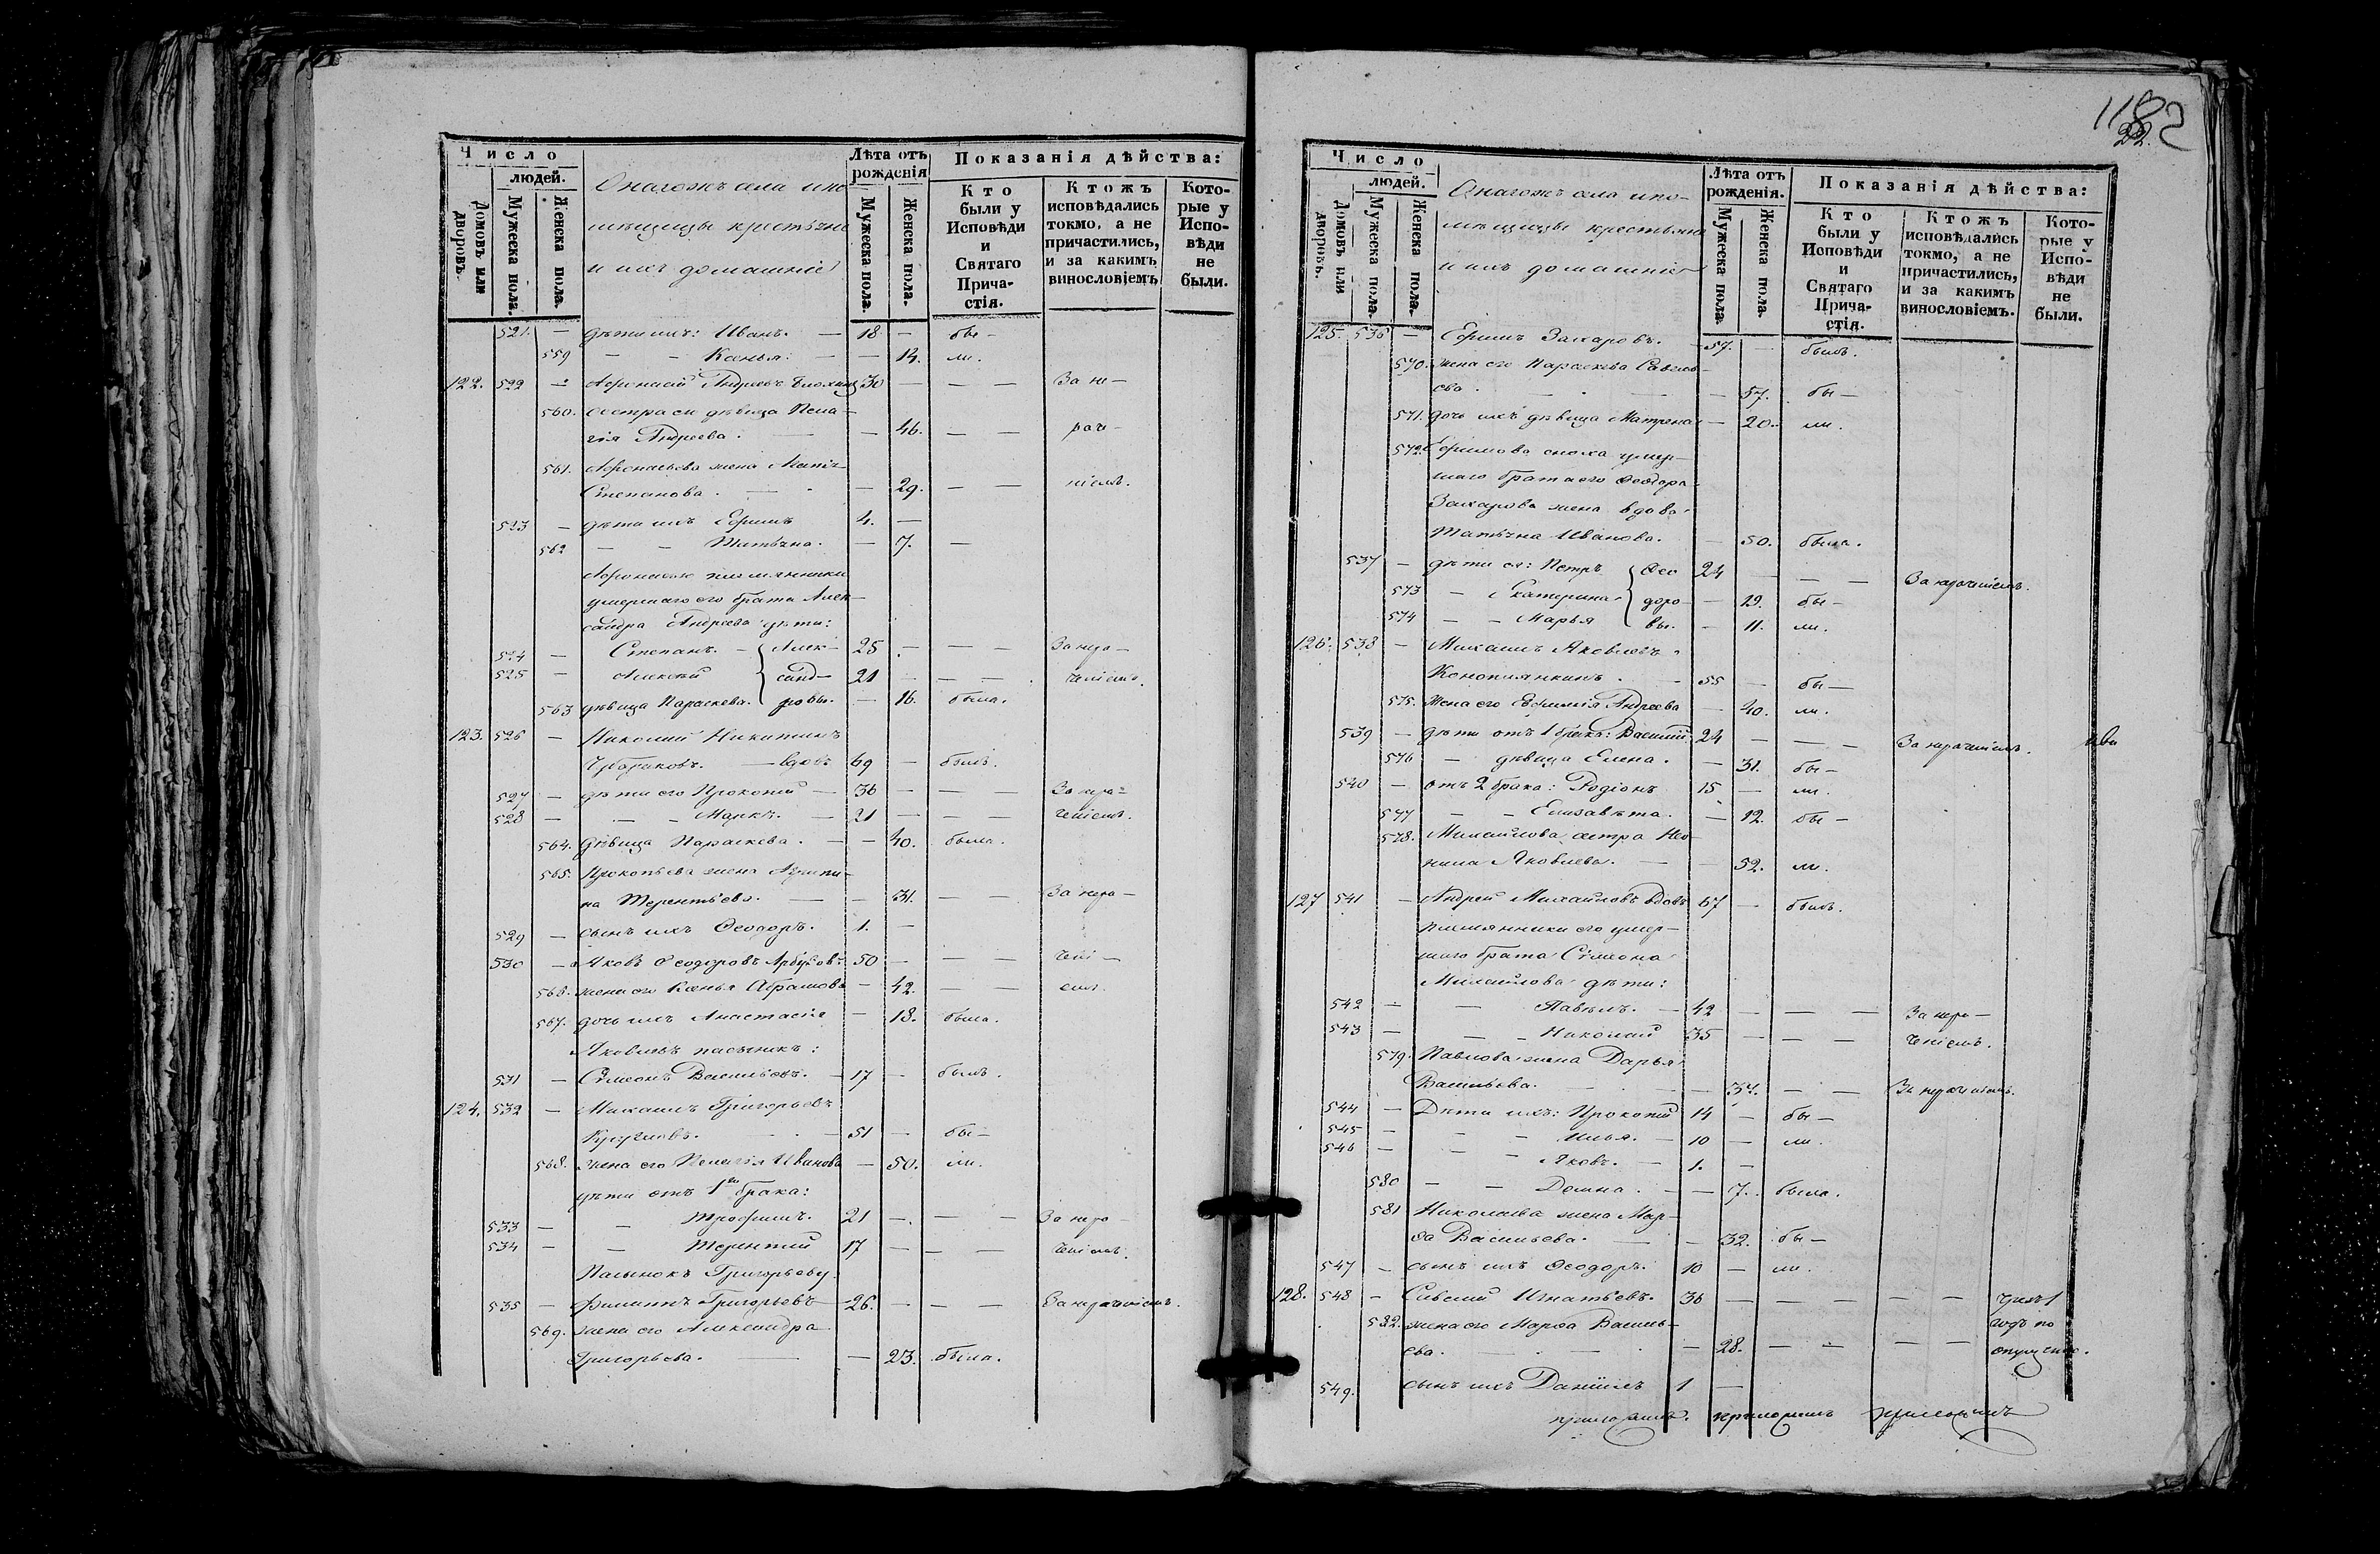 Число
людей.
Домовъ или дворовъ.
Мужеска пола.
Женска пола.
Онагожъ села и по-
мѣщицы крестьяне
и ихъ домашніе
Лѣта отъ рожденія
Мужеска пола.
Женска пола.
Показанія дѣйства:
Кто были у Исповѣди и Святаго Прича-стія.
Ктожъ исповѣдались токмо, а не причастились, и за какимъ винословіемъ
Кото-рые у Испо-вѣди не были.
521. — дѣти ихъ: Иванъ. — 18 — бы-
559 — — Ксенья: — — 14. ли.
122. 522 — Афонасій Андреевъ 30 — — — За не-
560. сестра ея дѣвица Пела-
гія Андреева. — — 46. — — раче-
561. Афонасьева жена
Степанова. — — 29. — — ніемъ.
523 — дѣти ихъ Ефимъ 4. —
562 — — Татьяна. — 7. —
Афонасью племянники
умершаго его брата Алек-
сандра Андреева дѣти:
524 — Степанъ. — Алек- 25 — — — За нера-
525 — Алексѣй санд- 21 — — — ченіемъ.
563 дѣвица Параскева. ровы. — 16. была.
123. 526 — Николай Никитинъ
— вдовъ 69 — былъ.
527 — дѣти его Прокопій — 36 — — — За нера-
528 — — — Маркъ. — 21 — — — ченіемъ.
564. дѣвица Параскева. — — 40. была.
565. Прокопьева жена Агрипи-
на Терентьева. — — 31. — — За нера-
529 — сынъ ихъ Ѳеодоръ. 1. —
530 — Яковъ Ѳеодоровъ 50 — — — чені-
566. жена его Ксенья Абрамова — 42. — — емъ.
567. дочь ихъ Анастасія — 18. была.
Яковлевъ пасынокъ:
531 — Симеонъ Васильевъ. — 17 — былъ.
124. 532 — Михаилъ Григорьевъ
Кругловъ. — 51 — бы-
568. жена его Пелагія Иванова — 50. ли.
дѣти отъ 1го брака:
533 — — Трофимъ. 21 — — — За нера-
534 — — Терентій 17 — — — ченіемъ.
Пасынокъ Григорьеву
535 — Филиппъ Григорьевъ 26. — — — За нераченіемъ.
569. жена его Александра
Григорьева. — — 23. была.
1182
22.
Число
людей.
Домовъ или дворовъ.
Мужеска пола.
Женска пола.
Онагожъ села и по-
мѣщицы крестьяне
и ихъ домашніе
Лѣта отъ рожденія.
Мужеска пола.
Женска пола.
Показанія дѣйства:
Кто были у Исповѣди и Святаго Прича-стія.
Ктожъ исповѣдались токмо, а не причастились, и за какимъ винословіемъ.
Кото-рые у Испо-вѣди не были.
125. 536 — Ефимъ Захаровъ. 57. — былъ.
570. жена его Параскева Савель-
ева. — — 57. бы-
571. дочь ихъ дѣвица Матрена — 20. ли.
572. Ефимова сноха умер-
шаго брата его Ѳеодора
Захарова жена вдова
Татьяна Иванова. — 50. была.
537 — дѣти ея: Петръ Ѳео 24 — — — За нераченіемъ.
573 — Екатерина доро- — 19. бы-
574 — — Марья вы. — 11. ли.
126. 538 — Михаилъ Яковлевъ
Конопляникинъ. — 55 — бы-
575. Жена его Евфимія Андреева — 40. ли.
539 — дѣти отъ 1 брака: Василій 24 — — — За нераченіемъ.
576 — дѣвица Елена. — 31. бы-
540 — отъ 2 брака: Родіонъ 15 — ли.
577 — — Елизавѣта. — 12. бы-
578. Михайлова сестра Нео-
нила Яковлева. — — 52. ли.
127 541 — Андрей Михайловъ вдовъ 67 — былъ.
племянники его умер-
шаго брата Симеона
Михайлова дѣти:
542 — — Павелъ. — 42 — — — За нера-
543 — — — Николай 35 — — — ченіемъ.
579. Павлова жена Дарья
Васильева. — — 34. — — За нераченіемъ.
544 — Дѣти ихъ: Прокопій 14 — бы-
545 — — — Илья. — 10 — ли.
546 — — — Яковъ. — 1. —
580 — — Домна. — — 7. была.
581 Николаева жена Мар-
ѳа Васильева. — — 32. бы-
547 — сынъ ихъ Ѳеодоръ. 10 — ли.
128. 548 — Савелій Игнатьевъ. 36 — — — — — 1
582. жена его Марѳа Василь- годъ по
ева. — — — 28. — — — — опущенію.
549. сынъ ихъ Даніилъ 1 —